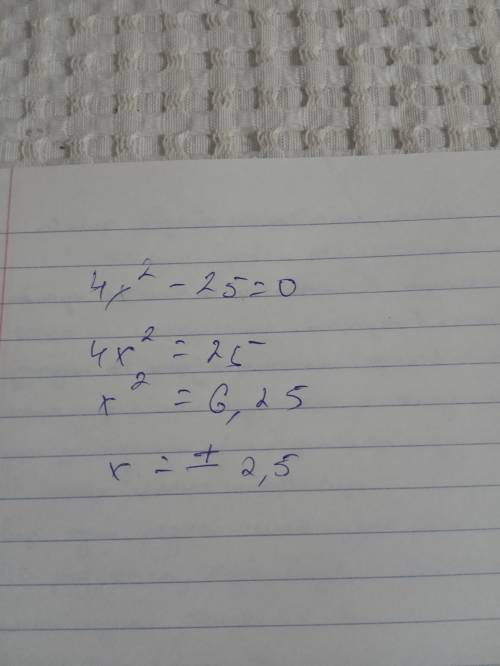 4x² - 25 = 0
4x² = 25
x² = 6,25
x = ± 2,5